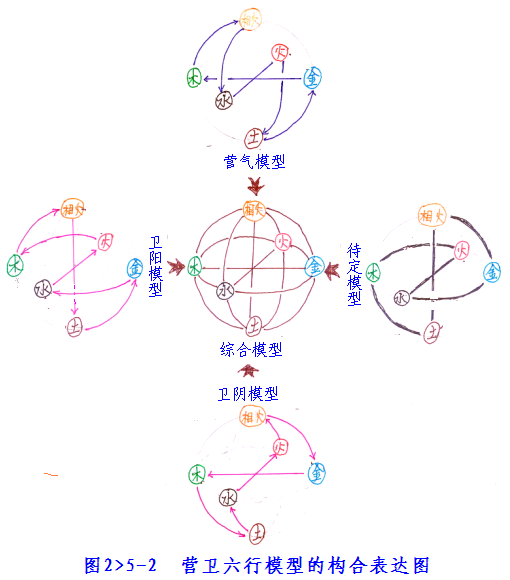 相火
火
木
金
水
土
营气模型
相火
火
木
金
水
土
卫阳模型
相火
火
木
金
水
土
综合模型
待定模型
相火
火
木
金
水
土
卫阴模型
相火
火
木
金
水
土
图2>5-2 营卫六行模型的构合表达图